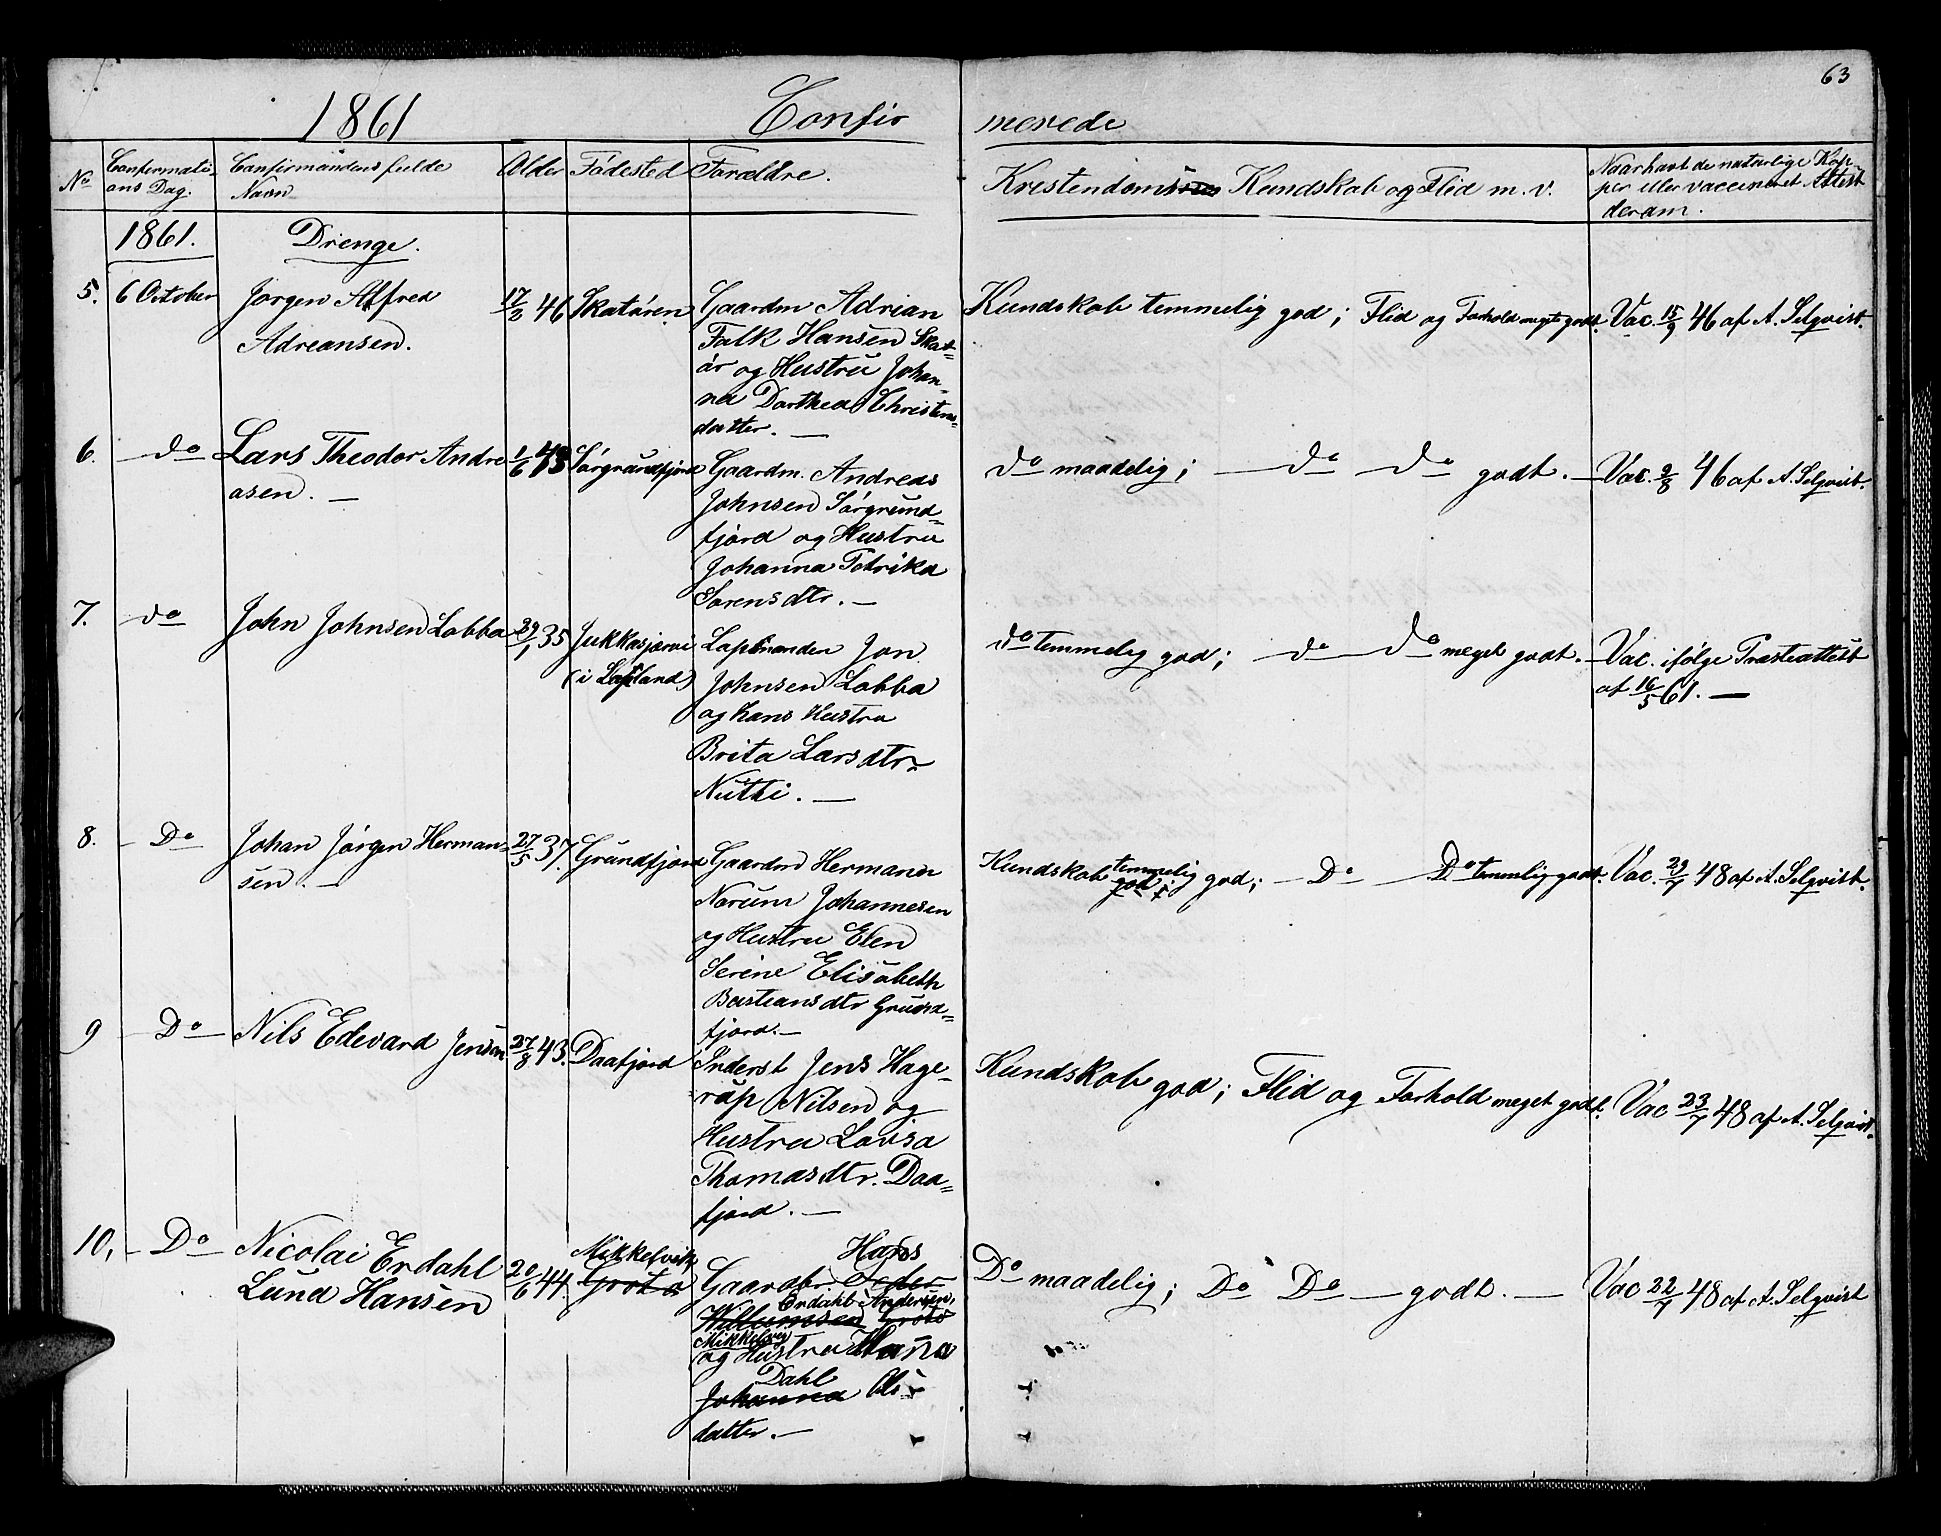 63
1861 Confir merede
No Confirmati-
ons Dag. Confirmandens fulde
Navn Alder Födested Forældre. Krestendoms Kundskab og Flid m. v. Naar havt de naturlige Kop-
per eller vaccineret Attest
derom.
1861. Drenge.
5. 6 October Jørgen Alfred
Adreansen. 17/2 46 Skatören Gaardm Adrian
Falk Hansen Skat-
ör og Hustru Johan-
na Dorthea Christens-
datter. — Kundskab temmelig god; Flid og Forhold meget godt. Vac. 15/9 46 af A. Selqvist.
6. do Lars Theodor Andre
asen. — 1/6 43 Sörgrundfjord Gaardm. Andreas
Johnsen Sörgrund-
fjord og Hustru
Johanna Petrika
Sørensdtr. — do maadelig; — do — do godt. — Vac. 9/8 46 af A. Selqvist.
7. do John Johnsen Labba 29/1 35 Jukkasjærvi
(i Lapland) Lapmanden Jon
Johnsen Labba
og hans Hustru
Brita Larsdtr
Nutti. — do temmelig god; — do — do meget godt. — Vac. ifölge Præsteattest
af 16/5 61. —
8. Do Johan Jørgen Herman-
sen. — 27/5 37. Grundfjord Gaardmd Herman
Norum Johannesen
og Hustru Elen
Serine Elisabeth
Bastiansdtr Grund-
fjord. — Kundskab temmelig
god; god; — Do — Do temmelig godt. Vac. 29/7 48 af A. Selqvist.
9 Do Nils Edevard Jensen 27/8 43. Daafjord Inderst Jens Hage-
rup Nilsen og
Hustru Lovisa
Thomasdtr. Daa-
fjord. — Kundskab god; Flid og Forhold meget godt. Vac 23/7 48 af A. Selqvist.
10, Do Nicolai Erdahl
Lund Hansen 20/6 44. Mikkelvik
Grotö Hans
Gaardbr. Peder
Erdahl Andersen,
Willumsen Grotö
Mikkelvig
og Hustru Hana
Dahl
Johanna Ols
datter. — Do maadelig; Do Do — godt. — Vac 22/7 48 af A. Selqvist